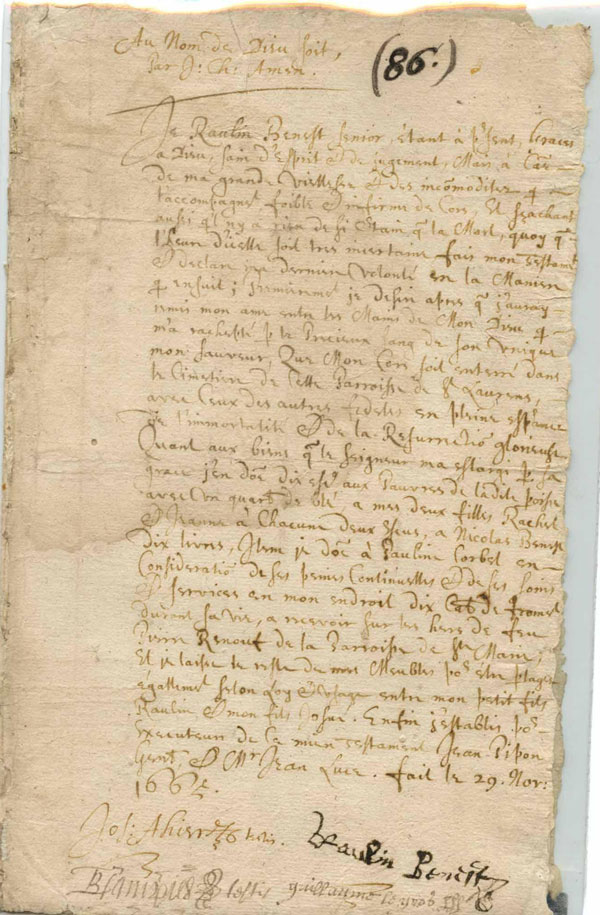 Au Nom de Dieu soit,
Par J: Ch: Amen.
(86.)
Je Raulin Benest senior, étant à pṡent, graces
a Dieu, sain d'Esprit & de jugement, Mais à Cause
de ma grande Viellesse & des incōmoditez q̄
l'accompagnēt foible & infirme de Cors, Et sçachant
aussi q̄ n'y a rien de si Čtain q̄ la Mort, quoy q̄
l'heure d'icelle soit tres incertaine fais mon testamēt
& declare ma derniere Volonté en la Maniere
q̄ ensuit; premieremēt je desire apres q̄ j'auray
remis mon ame entre les Mains de Mon Dieu q̄
m'a racheptée p̄ le Precieux sang de son Unique
mon sauveur, Que Mon Cors soit enterré dans
le Cimetiere de Cette Parroisse de St Laurens,
avec Ceux des autres fideles en pleine espānce
de l'immortalité & de la Resurrectiō glorieuse
Quant aux biens q̄ le seigneur m'a eslargi p̄ sa
grace j'en dōe dix esc̄ aux Pauvres de ladite p̄oisse
avec un quartē de blé, a mes deux filles Rachel
& Jeanne à Chacune deux escus, a Nicolas Benest
dix livres, Item je dōe à Pauline Corbel en
Consideratiō de ses peines Continuelles & de ses soins
& services en mon endroit dix Cab de fromēt
durant sa vie, a recevoir sur les hers de feu
Pierre Renouf de la Parroisse de Ste Marie,
Et je laisse le reste de mes Meubles po͛ être ptagez
egallemēt selon Loy & Usage entre mon petit fils
Raulin & mon fils Josué. Enfin j'establis po͛
executeurs de Ce mien testament Jean Pipon
Gent, & Mr Jean Luce. fait le 29. Nov:
Jos: Ahier testis.
Raulin Benest
testis guillaume